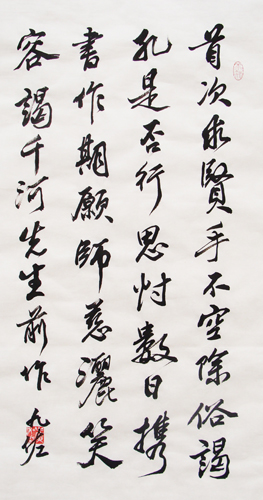 首次求賢手不空除俗謁
孔是否行思忖數日携
書作期願師慈灑笑
容謁千河先生前作